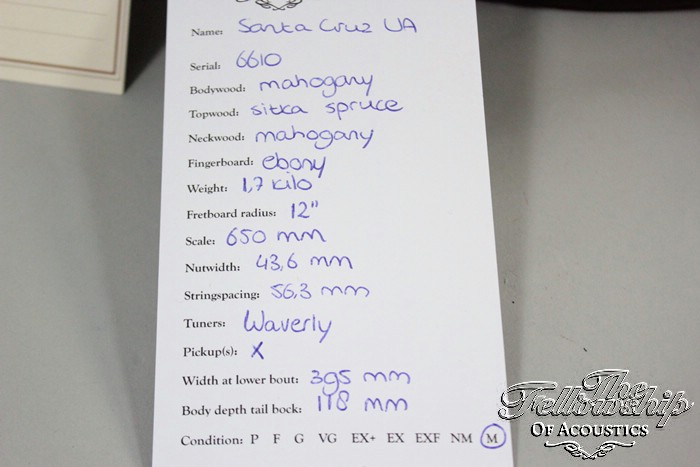 Name: Santa Cruz VA
Serial: 6610
Bodywood: mahogany
Topwood: sitka spruce
Neckwood: mahogany
Fingerboard: ebony
Weight: 1,7 kilo
Fretboard radius: 12"
Scale: 650 mm
Nutwidth: 43,6 mm
Stringspacing: 56,3 mm
Tuners: Waverly
Pickup(s): X
Width at lower bout: 395 mm
Body depth tail bock: 118 mm
Condition: P F G VG EX+ EX EXF NM M
The
Fellowship
OF ACOUSTICS